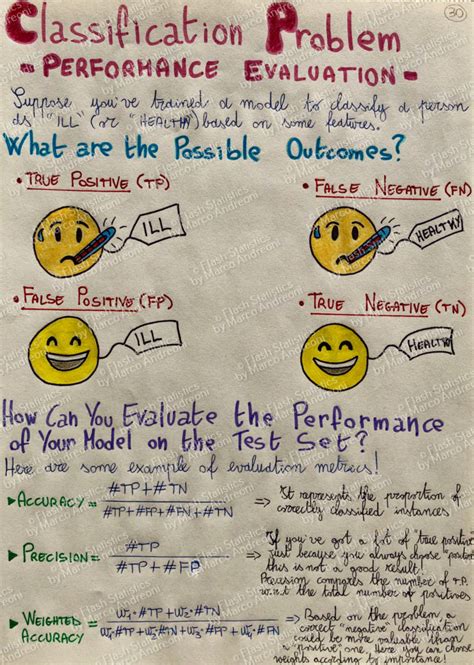 Classification Problem
30
- PERFORMANCE EVALUATION -
Suppose you've trained a model to classify a person
as "ILL" (or "HEALTHY") based on some features.
What are the Possible Outcomes?
• TRUE POSITIVE (TP)
• FALSE NEGATIVE (FN)
ILL
HEALTHY
• FALSE POSITIVE (FP)
• TRUE NEGATIVE (TN)
ILL
HEALTHY
How Can You Evaluate the Performance
of Your Model on the Test Set?
Here are some example of evaluation metrics!
▶ ACCURACY = #TP+#TN / #TP+#FP+#FN+#TN
⇒ It represents the proportion of
correctly classified instances
▶ PRECISION = #TP / #TP+#FP
⇒ If you've got a lot of "true positive"
just because you always choose "positive"
this is not a good result!
Precision compares the number of TP
w.r.t the total number of positives
▶ WEIGHTED ACCURACY = W₁·#TP+W₂·#TN
⇒ Based on the problem, a
correct "negative" classification
could be more valuable than
a "positive" one. Here you can choose
weights according to importance!
Flash Statistics
by Marco Andreoni